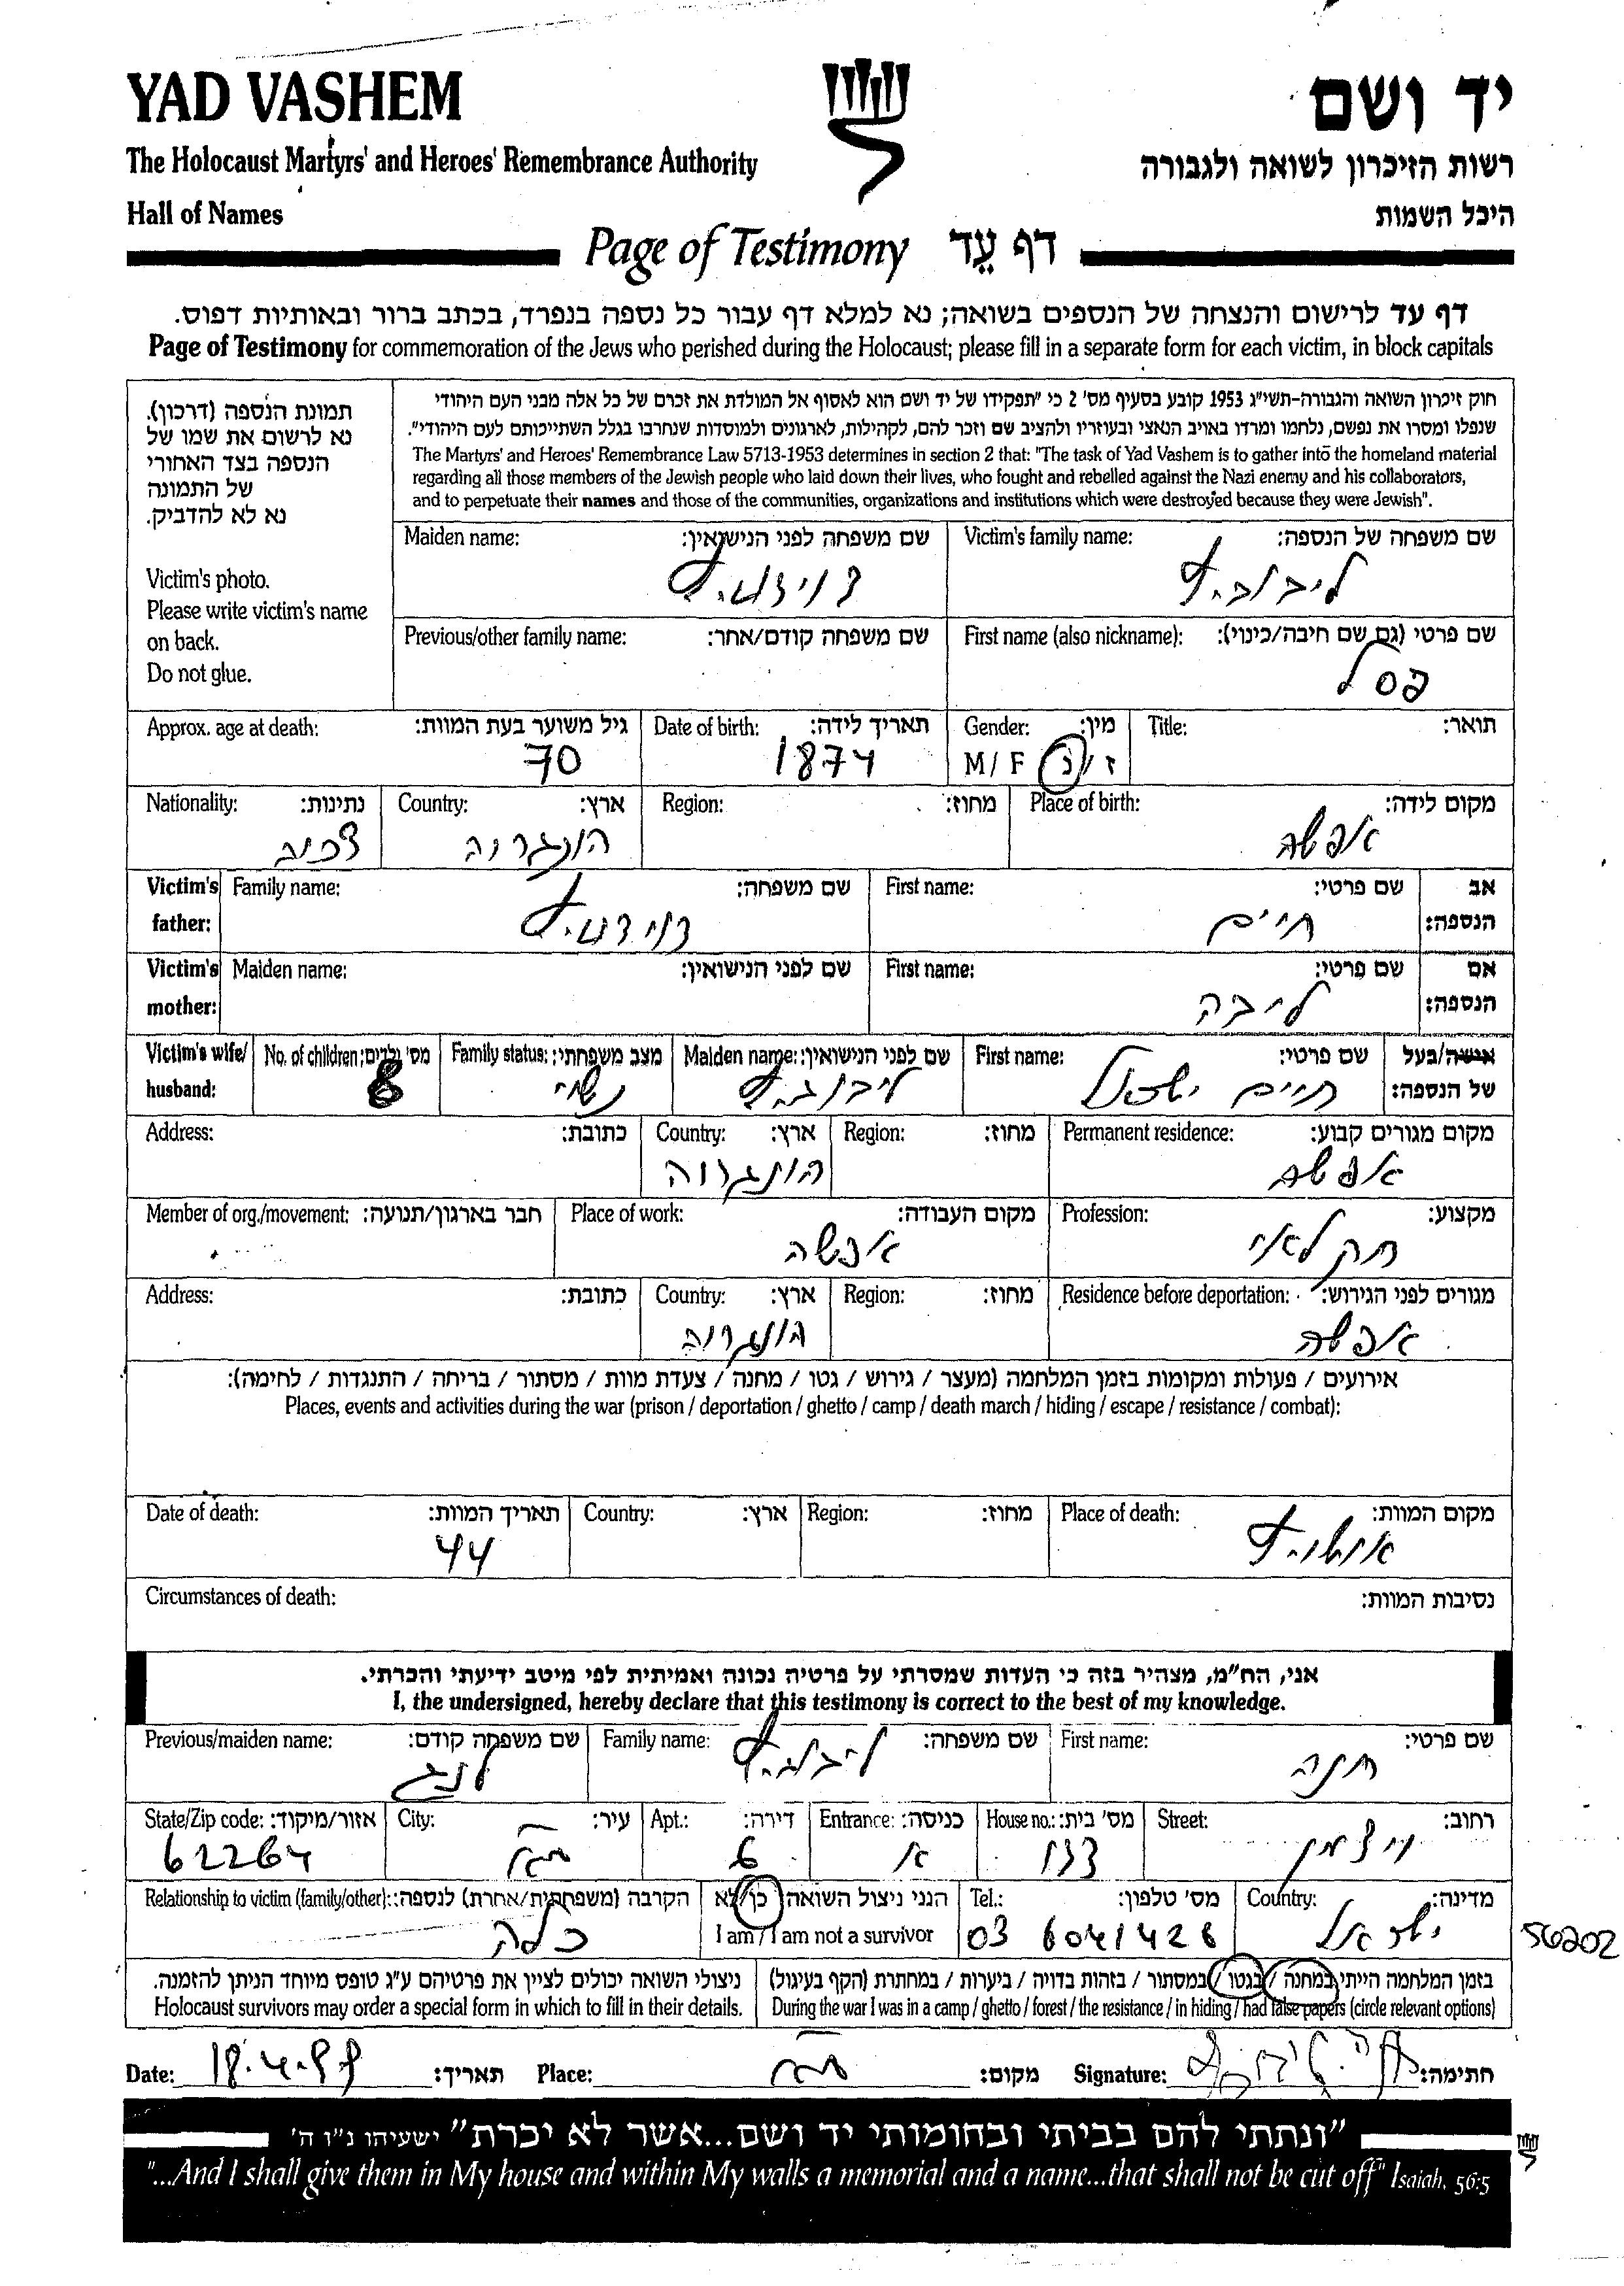 YAD VASHEM
יד ושם
The Holocaust Martyrs' and Heroes' Remembrance Authority
רשות הזיכרון לשואה ולגבורה
Hall of Names
היכל השמות
Page of Testimony דף עֵד
דף עד לרישום והנצחה של הנספים בשואה; נא למלא דף עבור כל נספה בנפרד, בכתב ברור ובאותיות דפוס.
Page of Testimony for commemoration of the Jews who perished during the Holocaust; please fill in a separate form for each victim, in block capitals
תמונת הנספה (דרכון).
נא לרשום את שמו של
הנספה בצד האחורי
של התמונה
נא לא להדביק.
Victim's photo.
Please write victim's name
on back.
Do not glue.
חוק זיכרון השואה והגבורה-תשי"ג 1953 קובע בסעיף מס' 2 כי "תפקידו של יד ושם הוא לאסוף אל המולדת את זכרם של כל אלה מבני העם היהודי
שנפלו ומסרו את נפשם, נלחמו ומרדו באויב הנאצי ובעוזריו ולהציב שם וזכר להם, לקהילות, לארגונים ולמוסדות שנחרבו בגלל השתייכותם לעם היהודי".
The Martyrs' and Heroes' Remembrance Law 5713-1953 determines in section 2 that: "The task of Yad Vashem is to gather into the homeland material
regarding all those members of the Jewish people who laid down their lives, who fought and rebelled against the Nazi enemy and his collaborators,
and to perpetuate their names and those of the communities, organizations and institutions which were destroyed because they were Jewish".
Victim's family name: שם משפחה של הנספה:
ליבוביץ
Maiden name: שם משפחה לפני הנישואין:
דוידוביץ
First name (also nickname): שם פרטי (גם שם חיבה/כינוי):
פסל
Previous/other family name: שם משפחה קודם/אחר:
Title: תואר:
Gender: מין:
M/ F ז/נ
Date of birth: תאריך לידה:
1874
Approx. age at death: גיל משוער בעת המוות:
70
Place of birth: מקום לידה:
אפשה
Region: מחוז:
Country: ארץ:
הונגרוה
Nationality: נתינות:
Victim's father: אב הנספה:
First name: שם פרטי:
חיים
Family name: שם משפחה:
דוידוביץ
Victim's mother: אם הנספה:
First name: שם פרטי:
ליבה
Maiden name: שם לפני הנישואין:
Victim's wife/ husband: אישה/בעל של הנספה:
First name: שם פרטי:
חיים ישראל
Maiden name: שם לפני הנישואין:
ליבוביץ
Family status: מצב משפחתי:
נשוי
No. of children: מס' ילדים:
8
Permanent residence: מקום מגורים קבוע:
אפשה
Region: מחוז:
Country: ארץ:
הונגרוה
Address: כתובת:
Profession: מקצוע:
חקלאי
Place of work: מקום העבודה:
אפשה
Member of org./movement: חבר בארגון/תנועה:
Residence before deportation: מגורים לפני הגירוש:
אפשה
Region: מחוז:
Country: ארץ:
הונגרוה
Address: כתובת:
אירועים / פעולות ומקומות בזמן המלחמה (מעצר / גירוש / גטו / מחנה / צעדת מוות / מסתור / בריחה / התנגדות / לחימה):
Places, events and activities during the war (prison / deportation / ghetto / camp / death march / hiding / escape / resistance / combat):
Place of death: מקום המוות:
אושויץ
Region: מחוז:
Country: ארץ:
Date of death: תאריך המוות:
44
Circumstances of death: נסיבות המוות:
אני, הח"מ, מצהיר בזה כי העדות שמסרתי על פרטיה נכונה ואמיתית לפי מיטב ידיעתי והכרתי.
I, the undersigned, hereby declare that this testimony is correct to the best of my knowledge.
First name: שם פרטי:
חנה
Family name: שם משפחה:
ליבוביץ
Previous/maiden name: שם משפחה קודם:
לנג
Street: רחוב:
ויצמן
House no.: מס' בית:
133
Entrance: כניסה:
א
Apt.: דירה:
6
City: עיר:
State/Zip code: אזור/מיקוד:
62264
Country: מדינה:
ישראל
Tel.: מס' טלפון:
03 6041426
הנני ניצול השואה כן/לא
I am / I am not a survivor
Relationship to victim (family/other): הקרבה (משפחתית/אחרת) לנספה:
כלה
56202
בזמן המלחמה הייתי במחנה / בגטו / במסתור / בזהות בדויה / ביערות / במחתרת (הקף בעיגול)
During the war I was in a camp / ghetto / forest / the resistance / in hiding / had false papers (circle relevant options)
ניצולי השואה יכולים לציין את פרטיהם ע"ג טופס מיוחד הניתן להזמנה.
Holocaust survivors may order a special form in which to fill in their details.
Date: 18.4.99 תאריך:
Place: מקום:
Signature: חתימה:
"ונתתי להם בביתי ובחומותי יד ושם...אשר לא יכרת" ישעיהו נ"ו ה'
"...And I shall give them in My house and within My walls a memorial and a name...that shall not be cut off" Isaiah, 56:5